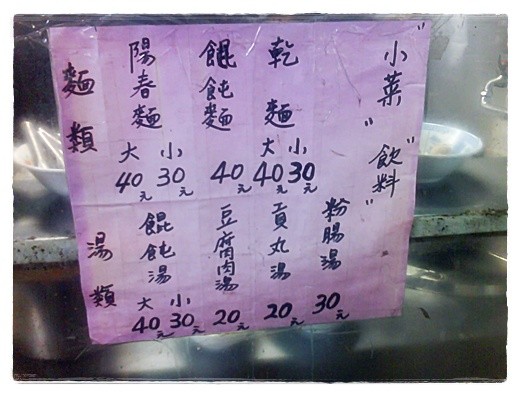 "小菜" "飲料"
麵類
陽春麵 大40元 小30元
餛飩麵 40元
乾麵 大40元 小30元
湯類
餛飩湯 大40元 小30元
豆腐肉湯 20元
貢丸湯 20元
粉腸湯 30元